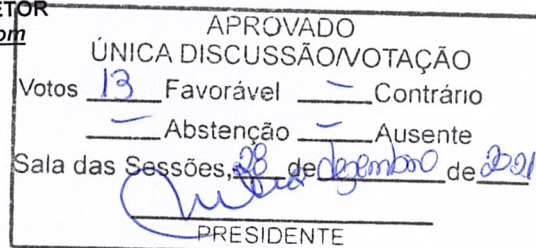 ETOR
om
APROVADO
ÚNICA DISCUSSÃO/VOTAÇÃO
Votos 13 Favorável — Contrário
— Abstenção — Ausente
Sala das Sessões, 28 de dezembro de 2021
PRESIDENTE